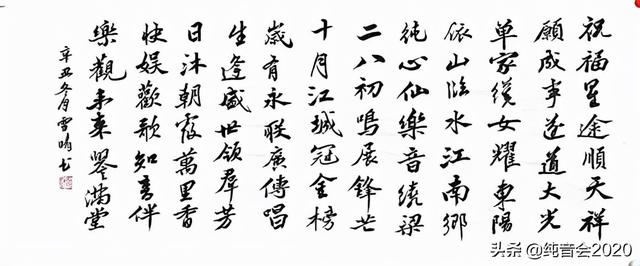 祝福星途順天祥
願成事遂道大光
單家女耀東陽
依山臨水江南鄉
純心仙樂音繞梁
二八初鳴展鋒芒
十月江城冠金榜
歲有永联廣傳唱
生逢盛世領群芳
日沐朝霞萬里香
快娱歡歌知音伴
樂觀未來譽滿堂
辛丑冬月雪晴书
头条 @纯音会2020